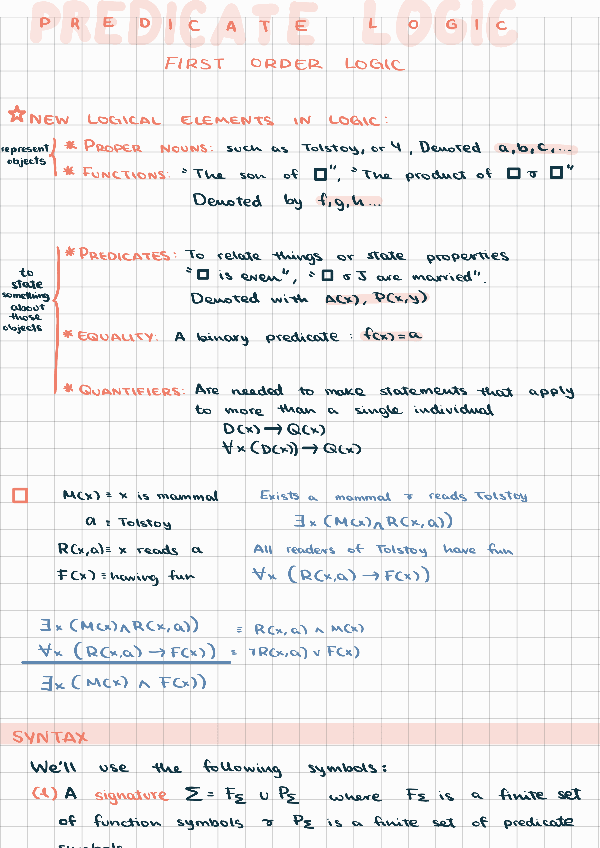 PREDICATE LOGIC
PREDICATE LOGIC
FIRST ORDER LOGIC
☆ NEW LOGICAL ELEMENTS IN LOGIC:
represent objects
* PROPER NOUNS: such as Tolstoy, or 4, Denoted a,b,c,...
* FUNCTIONS: "The son of □", "The product of □ & □"
Denoted by f,g,h...
to state something about those objects
* PREDICATES: To relate things or state properties
"□ is even", "□ & J are married".
Denoted with A(x), P(x,y)
* EQUALITY: A binary predicate: f(x)=a
* QUANTIFIERS: Are needed to make statements that apply
to more than a single individual
D(x) → Q(x)
∀x (D(x)) → Q(x)
□ M(x) ≡ x is mammal Exists a mammal & reads Tolstoy
a ≡ Tolstoy ∃x (M(x) ∧ R(x,a))
R(x,a) ≡ x reads a All readers of Tolstoy have fun
F(x) ≡ having fun ∀x (R(x,a) → F(x))
∃x (M(x) ∧ R(x,a)) ≡ R(x,a) ∧ M(x)
∀x (R(x,a) → F(x)) ≡ ¬R(x,a) ∨ F(x)
∃x (M(x) ∧ F(x))
SYNTAX
We'll use the following symbols:
(1) A signature Σ = F_Σ ∪ P_Σ where F_Σ is a finite set
of function symbols & P_Σ is a finite set of predicate
symbols